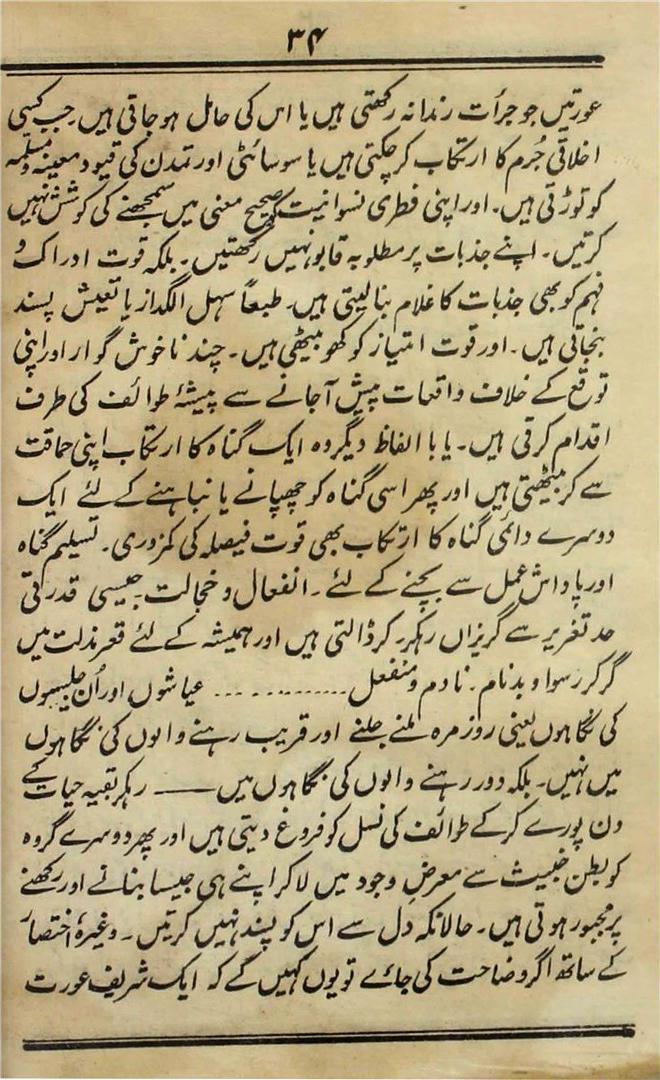 ۳۴
عورتیں جو جرأت رندانہ رکھتی ہیں یا اس کی حامل ہو جاتی ہیں۔ جب کسی
اخلاقی جُرم کا ارتکاب کر چکتی ہیں یا سوسائٹی اور تمدن کی قیود معینہ و مسلمہ
کو توڑتی ہیں۔ اور اپنی فطری نسوانیت کو صحیح معنی میں سمجھنے کی کوشش نہیں
کرتیں۔ اپنے جذبات پر مطلوبہ قابو نہیں رکھتیں۔ بلکہ قوت ادراک و
فہم کو بھی جذبات کا غلام بنا لیتی ہیں۔ طبعاً سہل الگداز یا تعیش پسند
بنجاتی ہیں۔ اور قوت امتیاز کو کھو بیٹھی ہیں۔ چند ناخوش گوار اور اپنی
توقع کے خلاف واقعات پیش آجانے سے پیشۂ طوائف کی طرف
اقدام کرتی ہیں۔ یا با الفاظ دیگر وہ ایک گناہ کا ارتکاب اپنی حماقت
سے کر بیٹھتی ہیں اور پھر اسی گناہ کو چھپانے یا نباہنے کے لئے ایک
دوسرے دائی گناہ کا ارتکاب بھی قوت فیصلہ کی کمزوری۔ تسلیم گناہ
اور پاداش عمل سے بچنے کے لئے۔ انفعال و خجالت جیسی قدرتی
حد تغریر سے گریزاں رہکر۔ کر ڈالتی ہیں اور ہمیشہ کے لئے قعر مذلت میں
گر کر رسوا و بدنام۔ نادم و منفعل .............. عیاشوں اور اُن جلیسوں
کی نگاہوں یعنی روزمرہ ملنے جلنے اور قریب رہنے والوں کی نگاہوں
میں نہیں۔ بلکہ دور رہنے والوں کی نگاہوں میں —— رہکر بقیہ حیات کے
دن پورے کر کے طوائف کی نسل کو فروغ دیتی ہیں اور پھر دوسرے گروہ
کو بطن خبیث سے معرض وجود میں لاکر اپنے ہی جیسا بنانے اور رکھنے
پر مجبور ہوتی ہیں۔ حالانکہ دل سے اس کو پسند نہیں کرتیں۔ وغیرہٗ اختصار
کے ساتھ اگر وضاحت کی جائے تو یوں کہیں گے کہ ایک شریف عورت